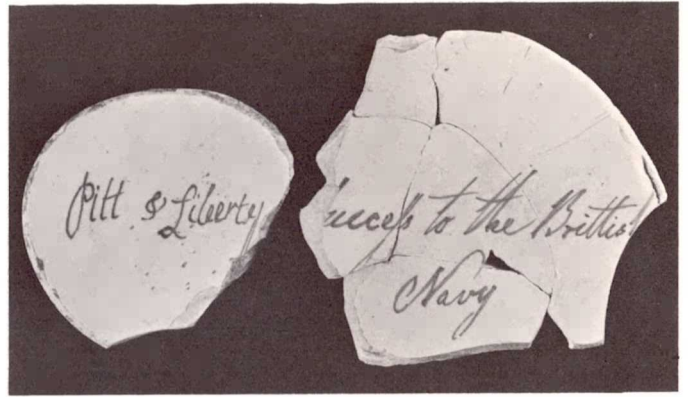 Pitt & Liberty
uccess to the Brittis
Navy